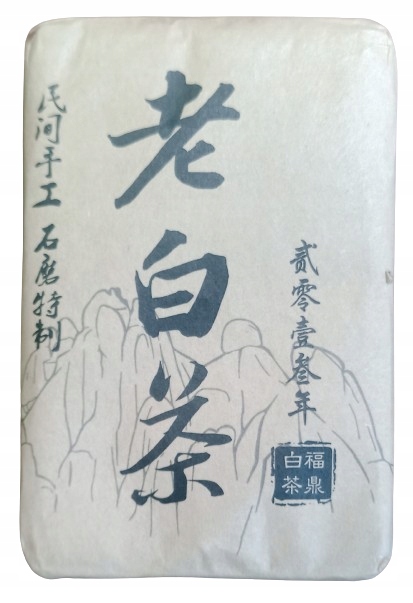 老白茶
民间手工 石磨特制
贰零壹叁年
福鼎
白茶